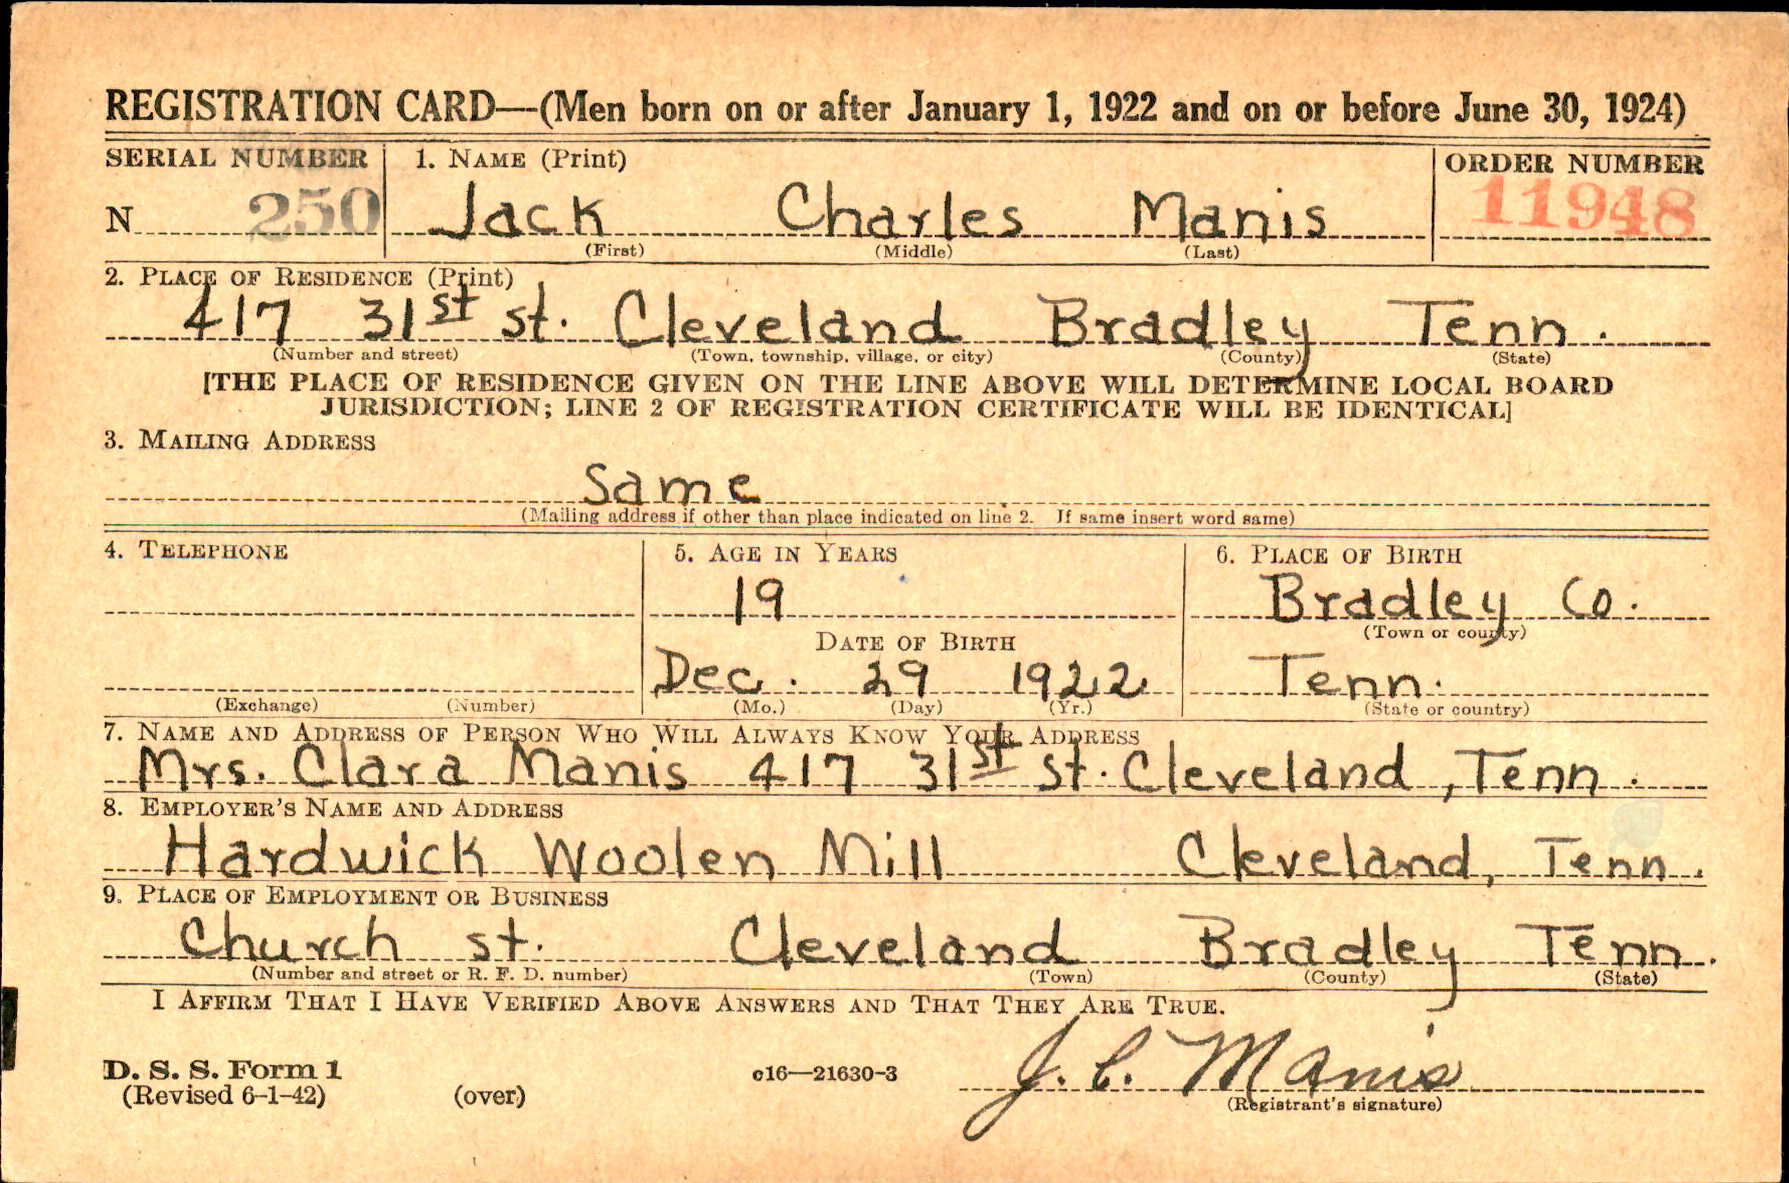 REGISTRATION CARD—(Men born on or after January 1, 1922 and on or before June 30, 1924)
SERIAL NUMBER 1. NAME (Print) ORDER NUMBER
N 250 Jack Charles Manis 11948
(First) (Middle) (Last)
2. PLACE OF RESIDENCE (Print)
417 31st st. Cleveland Bradley Tenn.
(Number and street) (Town, township, village, or city) (County) (State)
[THE PLACE OF RESIDENCE GIVEN ON THE LINE ABOVE WILL DETERMINE LOCAL BOARD
JURISDICTION; LINE 2 OF REGISTRATION CERTIFICATE WILL BE IDENTICAL]
3. MAILING ADDRESS
Same
(Mailing address if other than place indicated on line 2. If same insert word same)
4. TELEPHONE 5. AGE IN YEARS 6. PLACE OF BIRTH
19 Bradley Co.
DATE OF BIRTH (Town or county)
Dec. 29 1922 Tenn.
(Exchange) (Number) (Mo.) (Day) (Yr.) (State or country)
7. NAME AND ADDRESS OF PERSON WHO WILL ALWAYS KNOW YOUR ADDRESS
Mrs. Clara Manis 417 31st St. Cleveland, Tenn.
8. EMPLOYER'S NAME AND ADDRESS
Hardwick Woolen Mill Cleveland, Tenn.
9. PLACE OF EMPLOYMENT OR BUSINESS
Church st. Cleveland Bradley Tenn.
(Number and street or R. F. D. number) (Town) (County) (State)
I AFFIRM THAT I HAVE VERIFIED ABOVE ANSWERS AND THAT THEY ARE TRUE.
D. S. S. Form 1 c16—21630-3 J. C. Manis
(Revised 6-1-42) (over) (Registrant's signature)